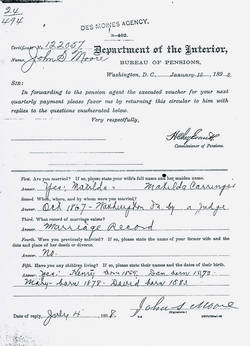 24
494
DES MOINES AGENCY.
3—402.
Certificate No. 122051
Name, John S. Moore
Department of the Interior,
BUREAU OF PENSIONS,
Washington, D. C., January 189
SIR:
In forwarding to the pension agent the executed voucher for your next
quarterly payment please favor me by returning this circular to him with
replies to the questions enumerated below.
Very respectfully,
Commissioner of Pensions.
First. Are you married? If so, please state your wife's full name and her maiden name.
Answer. Yes; Matilda – Matilda
Second. When, where, and by whom were you married?
Answer. Oct 1867 – Washington by a Judge
Third. What record of marriage exists?
Answer. Marriage Record
Fourth. Were you previously married? If so, please state the name of your former wife and the
date and place of her death or divorce.
Answer. No.
Fifth. Have you any children living? If so, please state their names and the dates of their birth.
Answer. Yes; Henry born Ben born 1873
Mary born 1878 – David born 1883
Date of reply, July 4 , 189
John S. Moore
(Signature.)